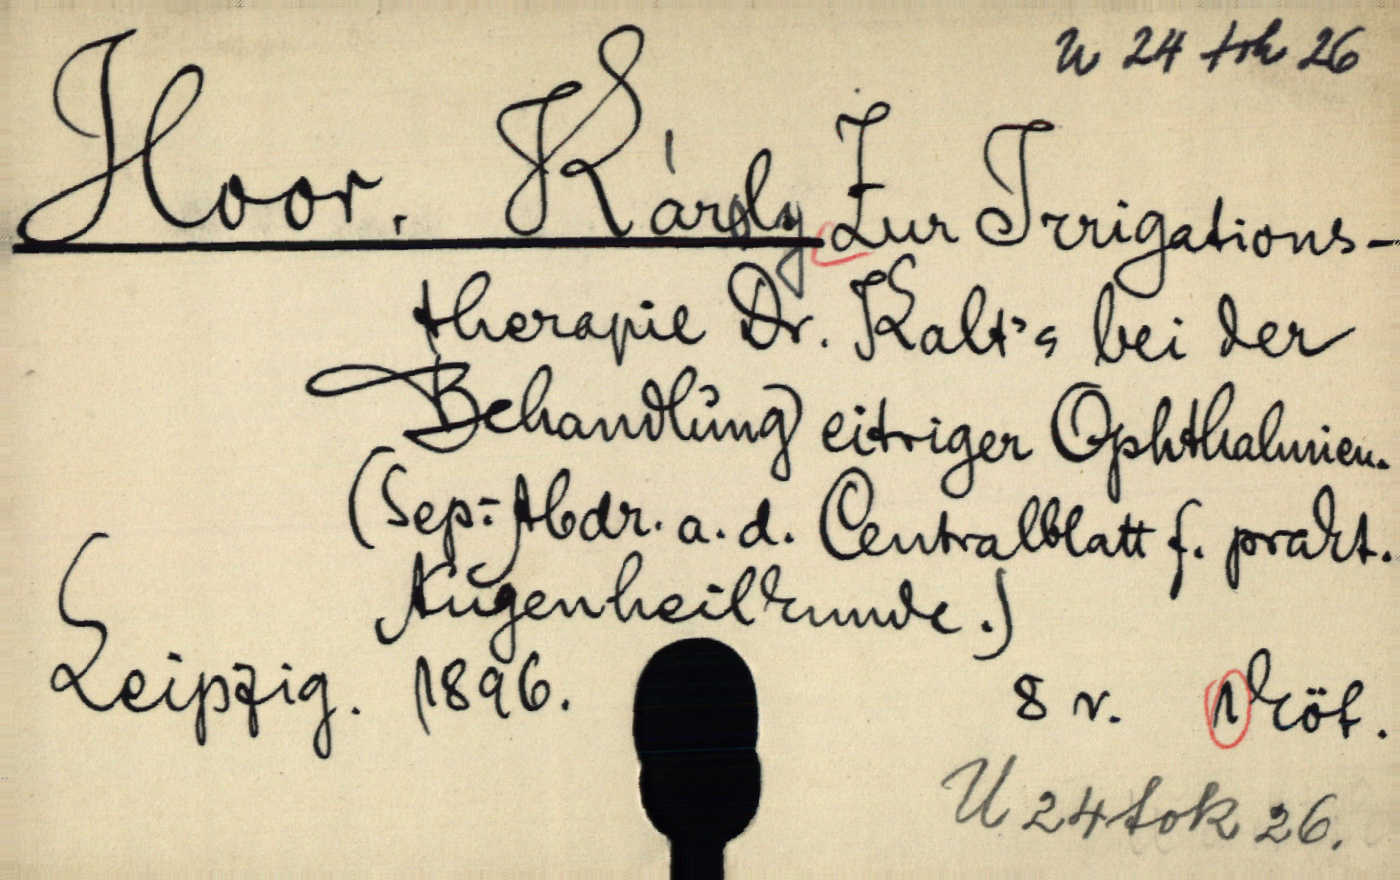 U 24 tok 26
Hoor. Károly Zur Irrigations-
therapie Dr. Kalt's bei der
Behandlung eitriger Ophthalmien.
(Sep.-Abdr. a. d. Centralblatt f. prakt.
Augenheilkunde.)
Leipzig. 1896. 8 r. 1 köt.
U 24 tok 26.